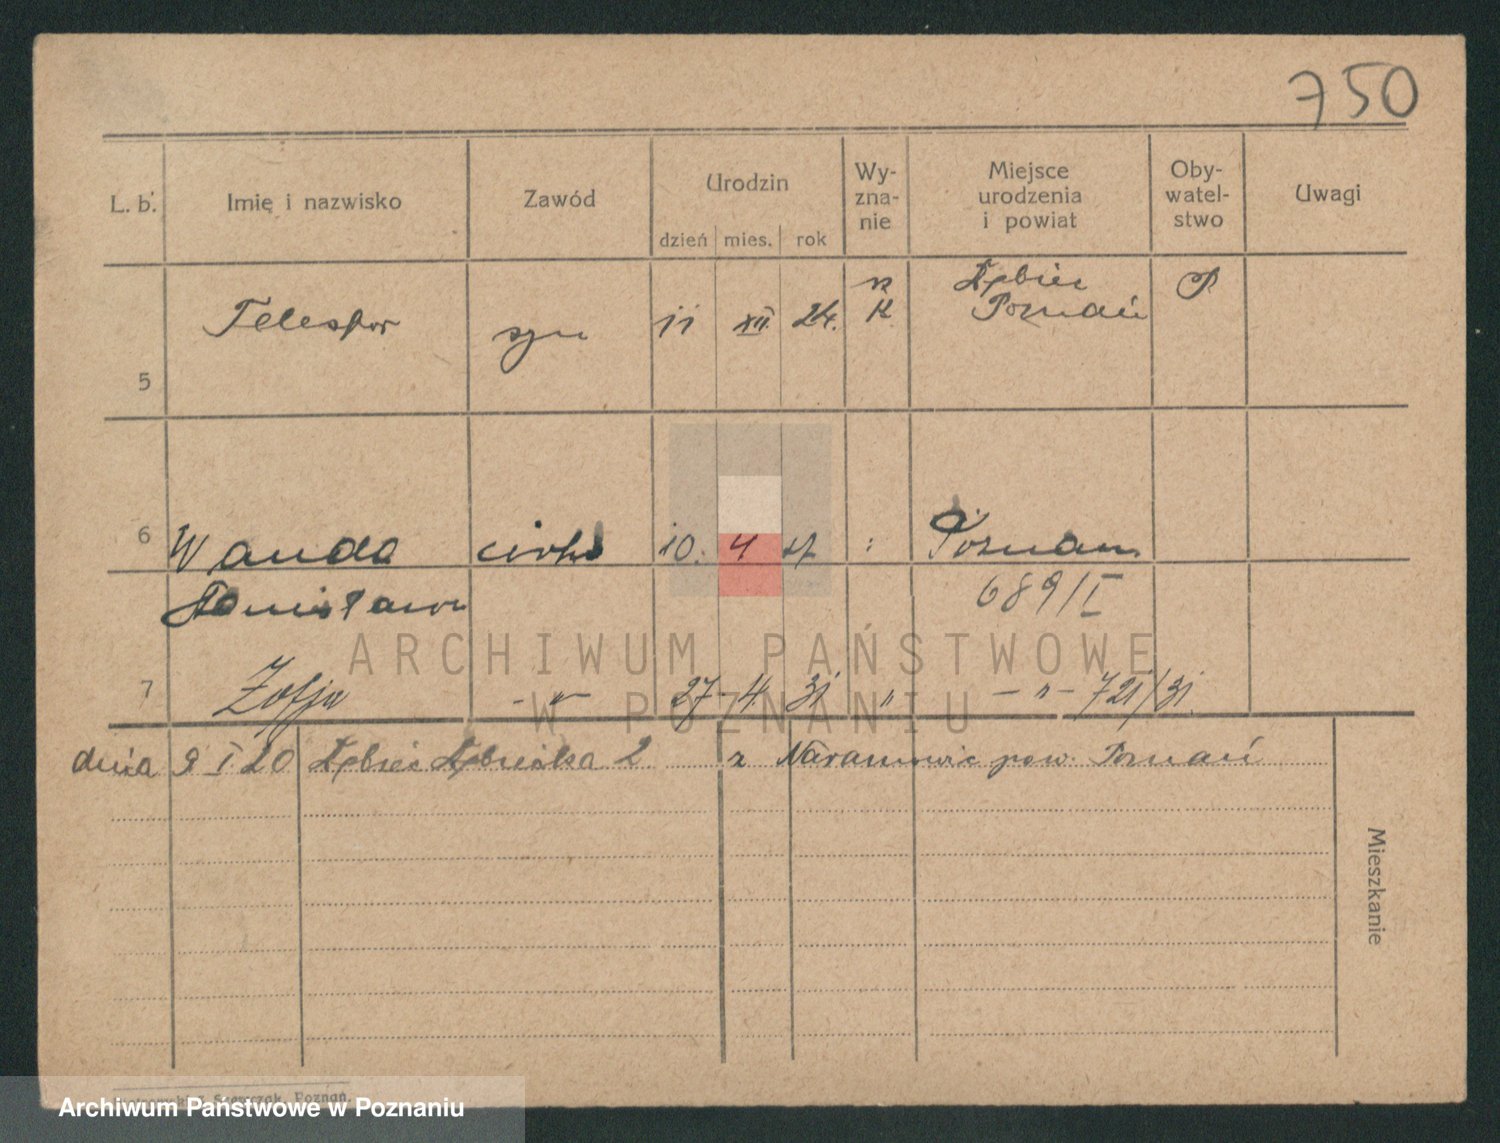 750
L. b. Imię i nazwisko Zawód Urodzin dzień mies. rok Wy-zna-nie Miejsce urodzenia i powiat Oby-watel-stwo Uwagi
Dębiec
5 Telesfor syn 11 XII. 24. R K. Poznań P
6 Wanda córka 10. 4 27 Poznań
Stanisława 689/I
7 Zofja - " - 27 - 4. 31 " - " - 721/31.
ARCHIWUM PAŃSTWOWE
W POZNANIU
dnia 9 I 20 Dębiec Dębiecka 2 z Naramowic pow. Poznań
Mieszkanie
Szewczak, Poznań.
Archiwum Państwowe w Poznaniu